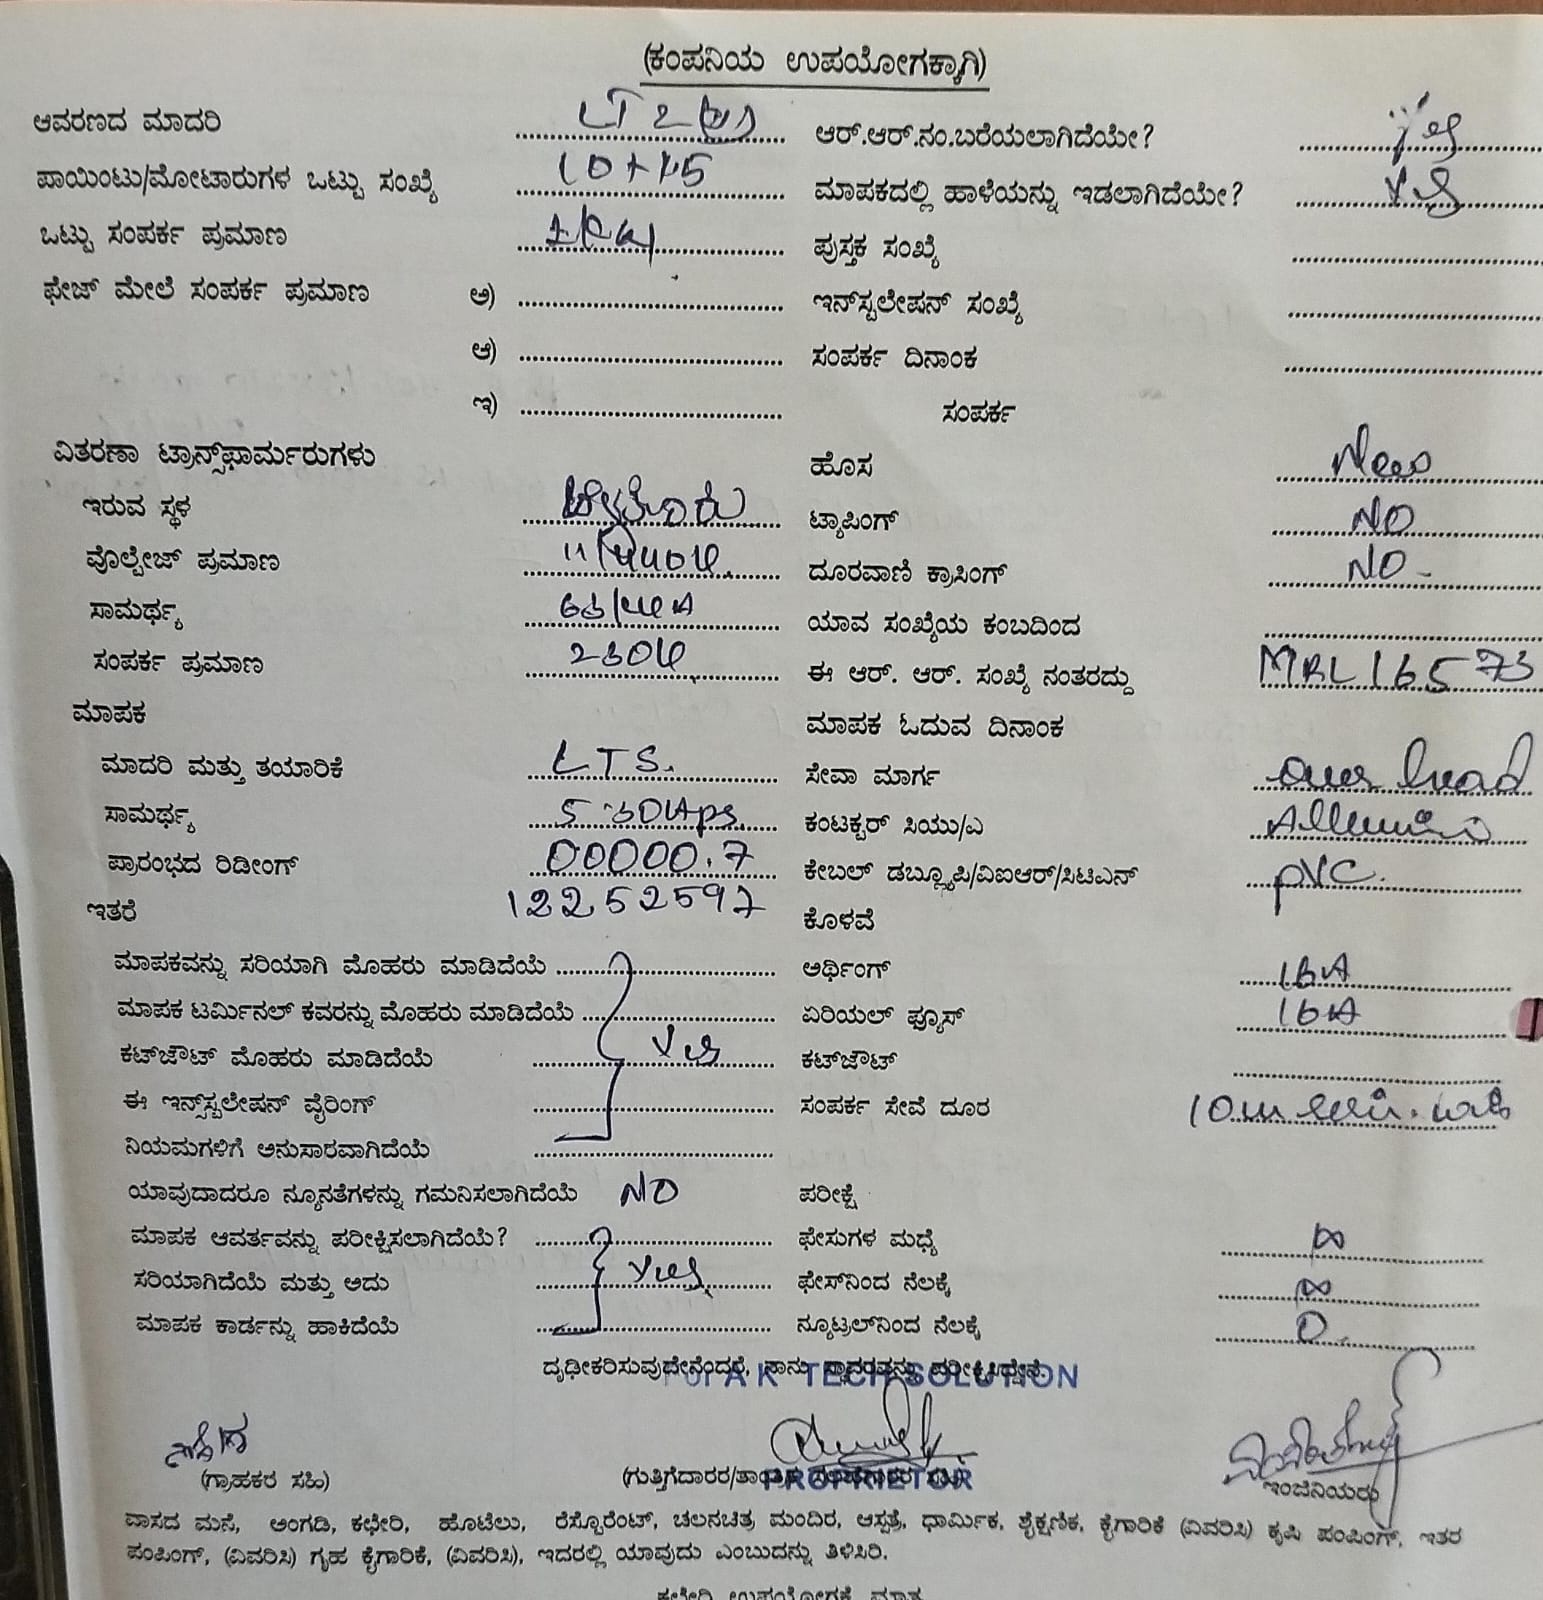 (ಕಂಪನಿಯ ಉಪಯೋಗಕ್ಕಾಗಿ)
ಆವರಣದ ಮಾದರಿ ಆರ್.ಆರ್.ನಂ.ಬರೆಯಲಾಗಿದೆಯೇ? Yes
ಪಾಯಿಂಟು/ಮೋಟಾರುಗಳ ಒಟ್ಟು ಸಂಖ್ಯೆ ಮಾಪಕದಲ್ಲಿ ಹಾಳೆಯನ್ನು ಇಡಲಾಗಿದೆಯೇ? Yes
ಒಟ್ಟು ಸಂಪರ್ಕ ಪ್ರಮಾಣ ಪುಸ್ತಕ ಸಂಖ್ಯೆ
ಫೇಜ್ ಮೇಲೆ ಸಂಪರ್ಕ ಪ್ರಮಾಣ ಅ) ಇನ್‌ಸ್ಟಲೇಷನ್ ಸಂಖ್ಯೆ
ಆ) ಸಂಪರ್ಕ ದಿನಾಂಕ
ಇ) ಸಂಪರ್ಕ
ವಿತರಣಾ ಟ್ರಾನ್ಸ್‌ಫಾರ್ಮರುಗಳು ಹೊಸ New
ಇರುವ ಸ್ಥಳ ಟ್ಯಾಪಿಂಗ್ NO
ವೊಲ್ಟೇಜ್ ಪ್ರಮಾಣ ದೂರವಾಣಿ ಕ್ರಾಸಿಂಗ್ NO -
ಸಾಮರ್ಥ್ಯ ಯಾವ ಸಂಖ್ಯೆಯ ಕಂಬದಿಂದ
ಸಂಪರ್ಕ ಪ್ರಮಾಣ 230V ಈ ಆರ್. ಆರ್. ಸಂಖ್ಯೆ ನಂತರದ್ದು MBL16573
ಮಾಪಕ ಮಾಪಕ ಓದುವ ದಿನಾಂಕ
ಮಾದರಿ ಮತ್ತು ತಯಾರಿಕೆ LTS. ಸೇವಾ ಮಾರ್ಗ over head
ಸಾಮರ್ಥ್ಯ 5-30Aps. ಕಂಟಕ್ಟರ್ ಸಿಯು/ಎ
ಪ್ರಾರಂಭದ ರಿಡೀಂಗ್ 00000.7 ಕೇಬಲ್ ಡಬ್ಲ್ಯೂಪಿ/ವಿಐಆರ್/ಸಿಟಿಎನ್ PVC.
ಇತರೆ 12252597 ಕೊಳವೆ
ಮಾಪಕವನ್ನು ಸರಿಯಾಗಿ ಮೊಹರು ಮಾಡಿದೆಯೆ ಅರ್ಥಿಂಗ್ 16A
ಮಾಪಕ ಟರ್ಮಿನಲ್ ಕವರನ್ನು ಮೊಹರು ಮಾಡಿದೆಯೆ ಏರಿಯಲ್ ಫ್ಯೂಸ್ 16A
ಕಟ್‌ಜೌಟ್ ಮೊಹರು ಮಾಡಿದೆಯೆ Yes ಕಟ್‌ಜೌಟ್
ಈ ಇನ್ಸ್‌ಸ್ಟಲೇಷನ್ ವೈರಿಂಗ್ ಸಂಪರ್ಕ ಸೇವೆ ದೂರ
ನಿಯಮಗಳಿಗೆ ಅನುಸಾರವಾಗಿದೆಯೆ
ಯಾವುದಾದರೂ ನ್ಯೂನತೆಗಳನ್ನು ಗಮನಿಸಲಾಗಿದೆಯೆ NO ಪರೀಕ್ಷೆ
ಮಾಪಕ ಆವರ್ತವನ್ನು ಪರೀಕ್ಷಿಸಲಾಗಿದೆಯೆ? ಫೇಸುಗಳ ಮಧ್ಯೆ ∞
ಸರಿಯಾಗಿದೆಯೆ ಮತ್ತು ಅದು Yes ಫೇಸ್‌ನಿಂದ ನೆಲಕ್ಕೆ ∞
ಮಾಪಕ ಕಾರ್ಡನ್ನು ಹಾಕಿದೆಯೆ ನ್ಯೂಟ್ರಲ್‌ನಿಂದ ನೆಲಕ್ಕೆ 0
ದೃಢೀಕರಿಸುವುದೇನೆಂದರೆ, ನಾನು
For A K TECH SOLUTION
(ಗ್ರಾಹಕರ ಸಹಿ) (ಗುತ್ತಿಗೆದಾರರ/ ಇಂಜಿನಿಯರು
PROPRIETOR
ವಾಸದ ಮನೆ, ಅಂಗಡಿ, ಕಛೇರಿ, ಹೊಟೆಲು, ರೆಸ್ಟೊರೆಂಟ್, ಚಲನಚಿತ್ರ ಮಂದಿರ, ಆಸ್ಪತ್ರೆ, ಧಾರ್ಮಿಕ, ಶೈಕ್ಷಣಿಕ, ಕೈಗಾರಿಕೆ (ವಿವರಿಸಿ) ಕೃಷಿ ಪಂಪಿಂಗ್, ಇತರ
ಪಂಪಿಂಗ್, (ವಿವರಿಸಿ) ಗೃಹ ಕೈಗಾರಿಕೆ, (ವಿವರಿಸಿ), ಇದರಲ್ಲಿ ಯಾವುದು ಎಂಬುದನ್ನು ತಿಳಿಸಿರಿ.